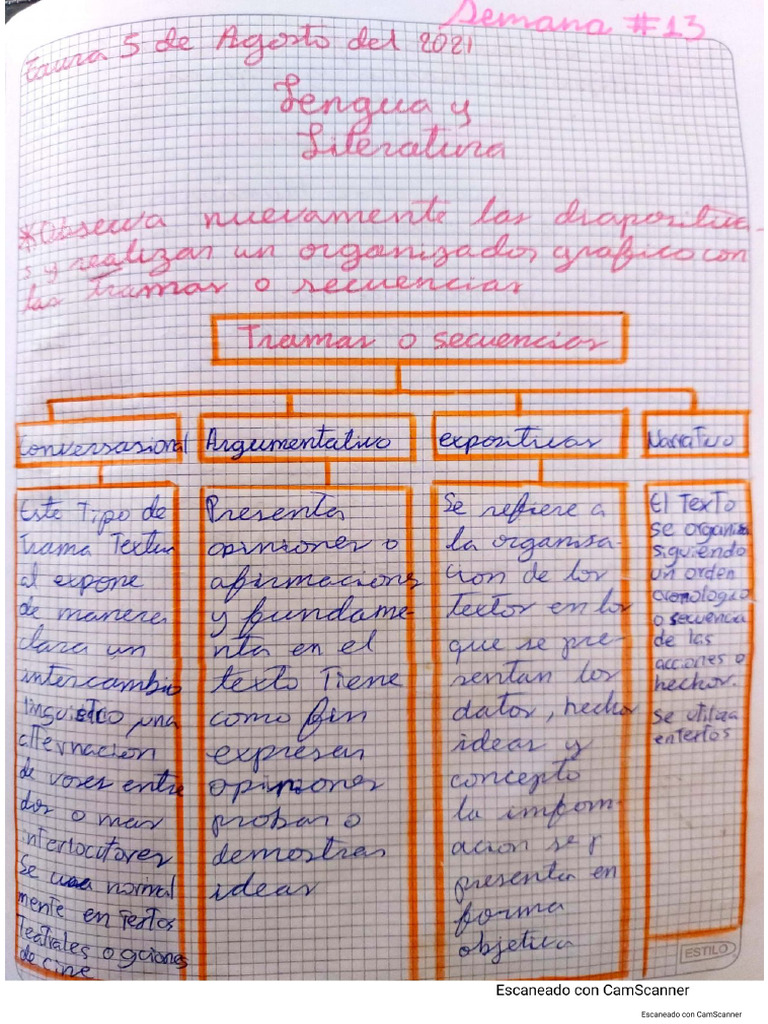 Semana #13
Taura 5 de Agosto del 2021
Lengua y
Literatura
*Observa nuevamente las diapositiva-
s y realizar un organizador grafico con
las Tramas o secuencias
Tramas o secuencias
Conversasional
Este Tipo de
Trama Textu
al expone
de manera
clara un
intercambio
linguistico y una
alternacion
de voses entre
dos o mas
interlocutores
Se usa normal
mente en Textos
Teatrales o guiones
de cine
Argumentativo
Presenta
opiniones o
afirmaciones
y fundame-
nta en el
texto Tiene
como fin
expresar
opiniones
probar o
demostrar
ideas
expositivas
Se refiere a
la organisa-
cion de los
textos en los
que se pre-
sentan los
datos, hechos
ideas y
concepto
la inform-
acion se
presenta en
forma
objetiva
Narrativo
El Texto
se organiza
siguiendo
un orden
cronologico
o secuencia
de las
acciones o
hechos.
se utiliza
en textos
ESTILO
Escaneado con CamScanner
Escaneado con CamScanner